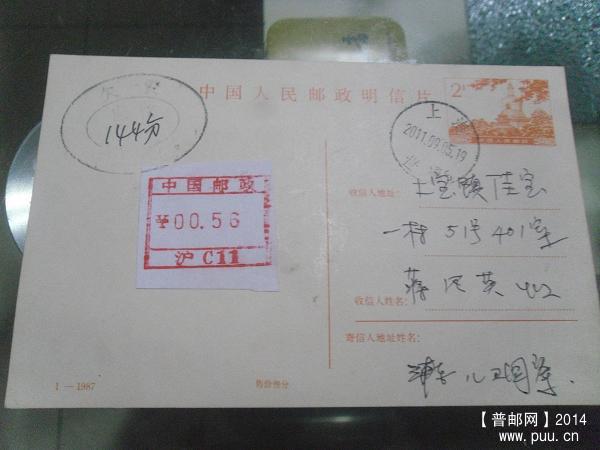 欠资
144分
中国人民邮政明信片
2分
上海
2011.09.05.19
中国邮政
¥00.56
沪C11
收信人地址:
宝镇佳宝
一村51号401室
收信人姓名:
蒋 英 收
寄信人地址姓名:
1—1987
售价叁分
【普邮网】2014
www.puu.cn